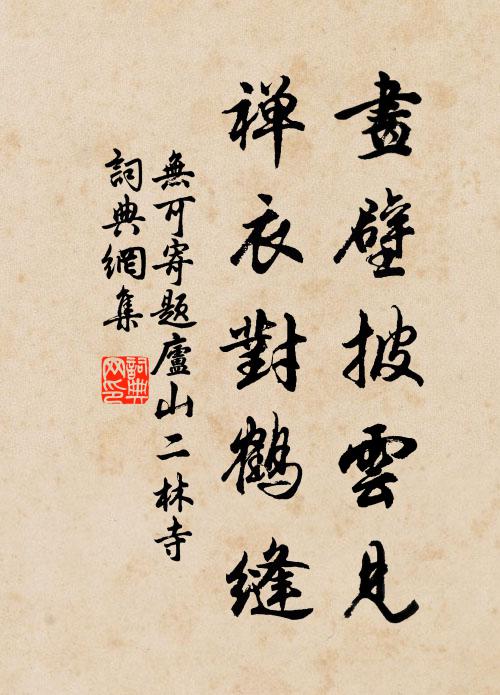 畫壁披雲見
禪衣對鶴縫
無可寄題廬山二林寺
詞典網集
詞典网印